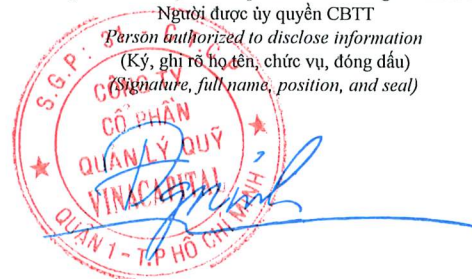 Người được ủy quyền CBTT
Person authorized to disclose information
(Ký, ghi rõ họ tên, chức vụ, đóng dấu)
(Signature, full name, position, and seal)
CÔNG TY
CỔ PHẦN
QUẢN LÝ QUỸ
VINACAPITAL
QUẬN 1 - T.P HỒ CHÍ MINH